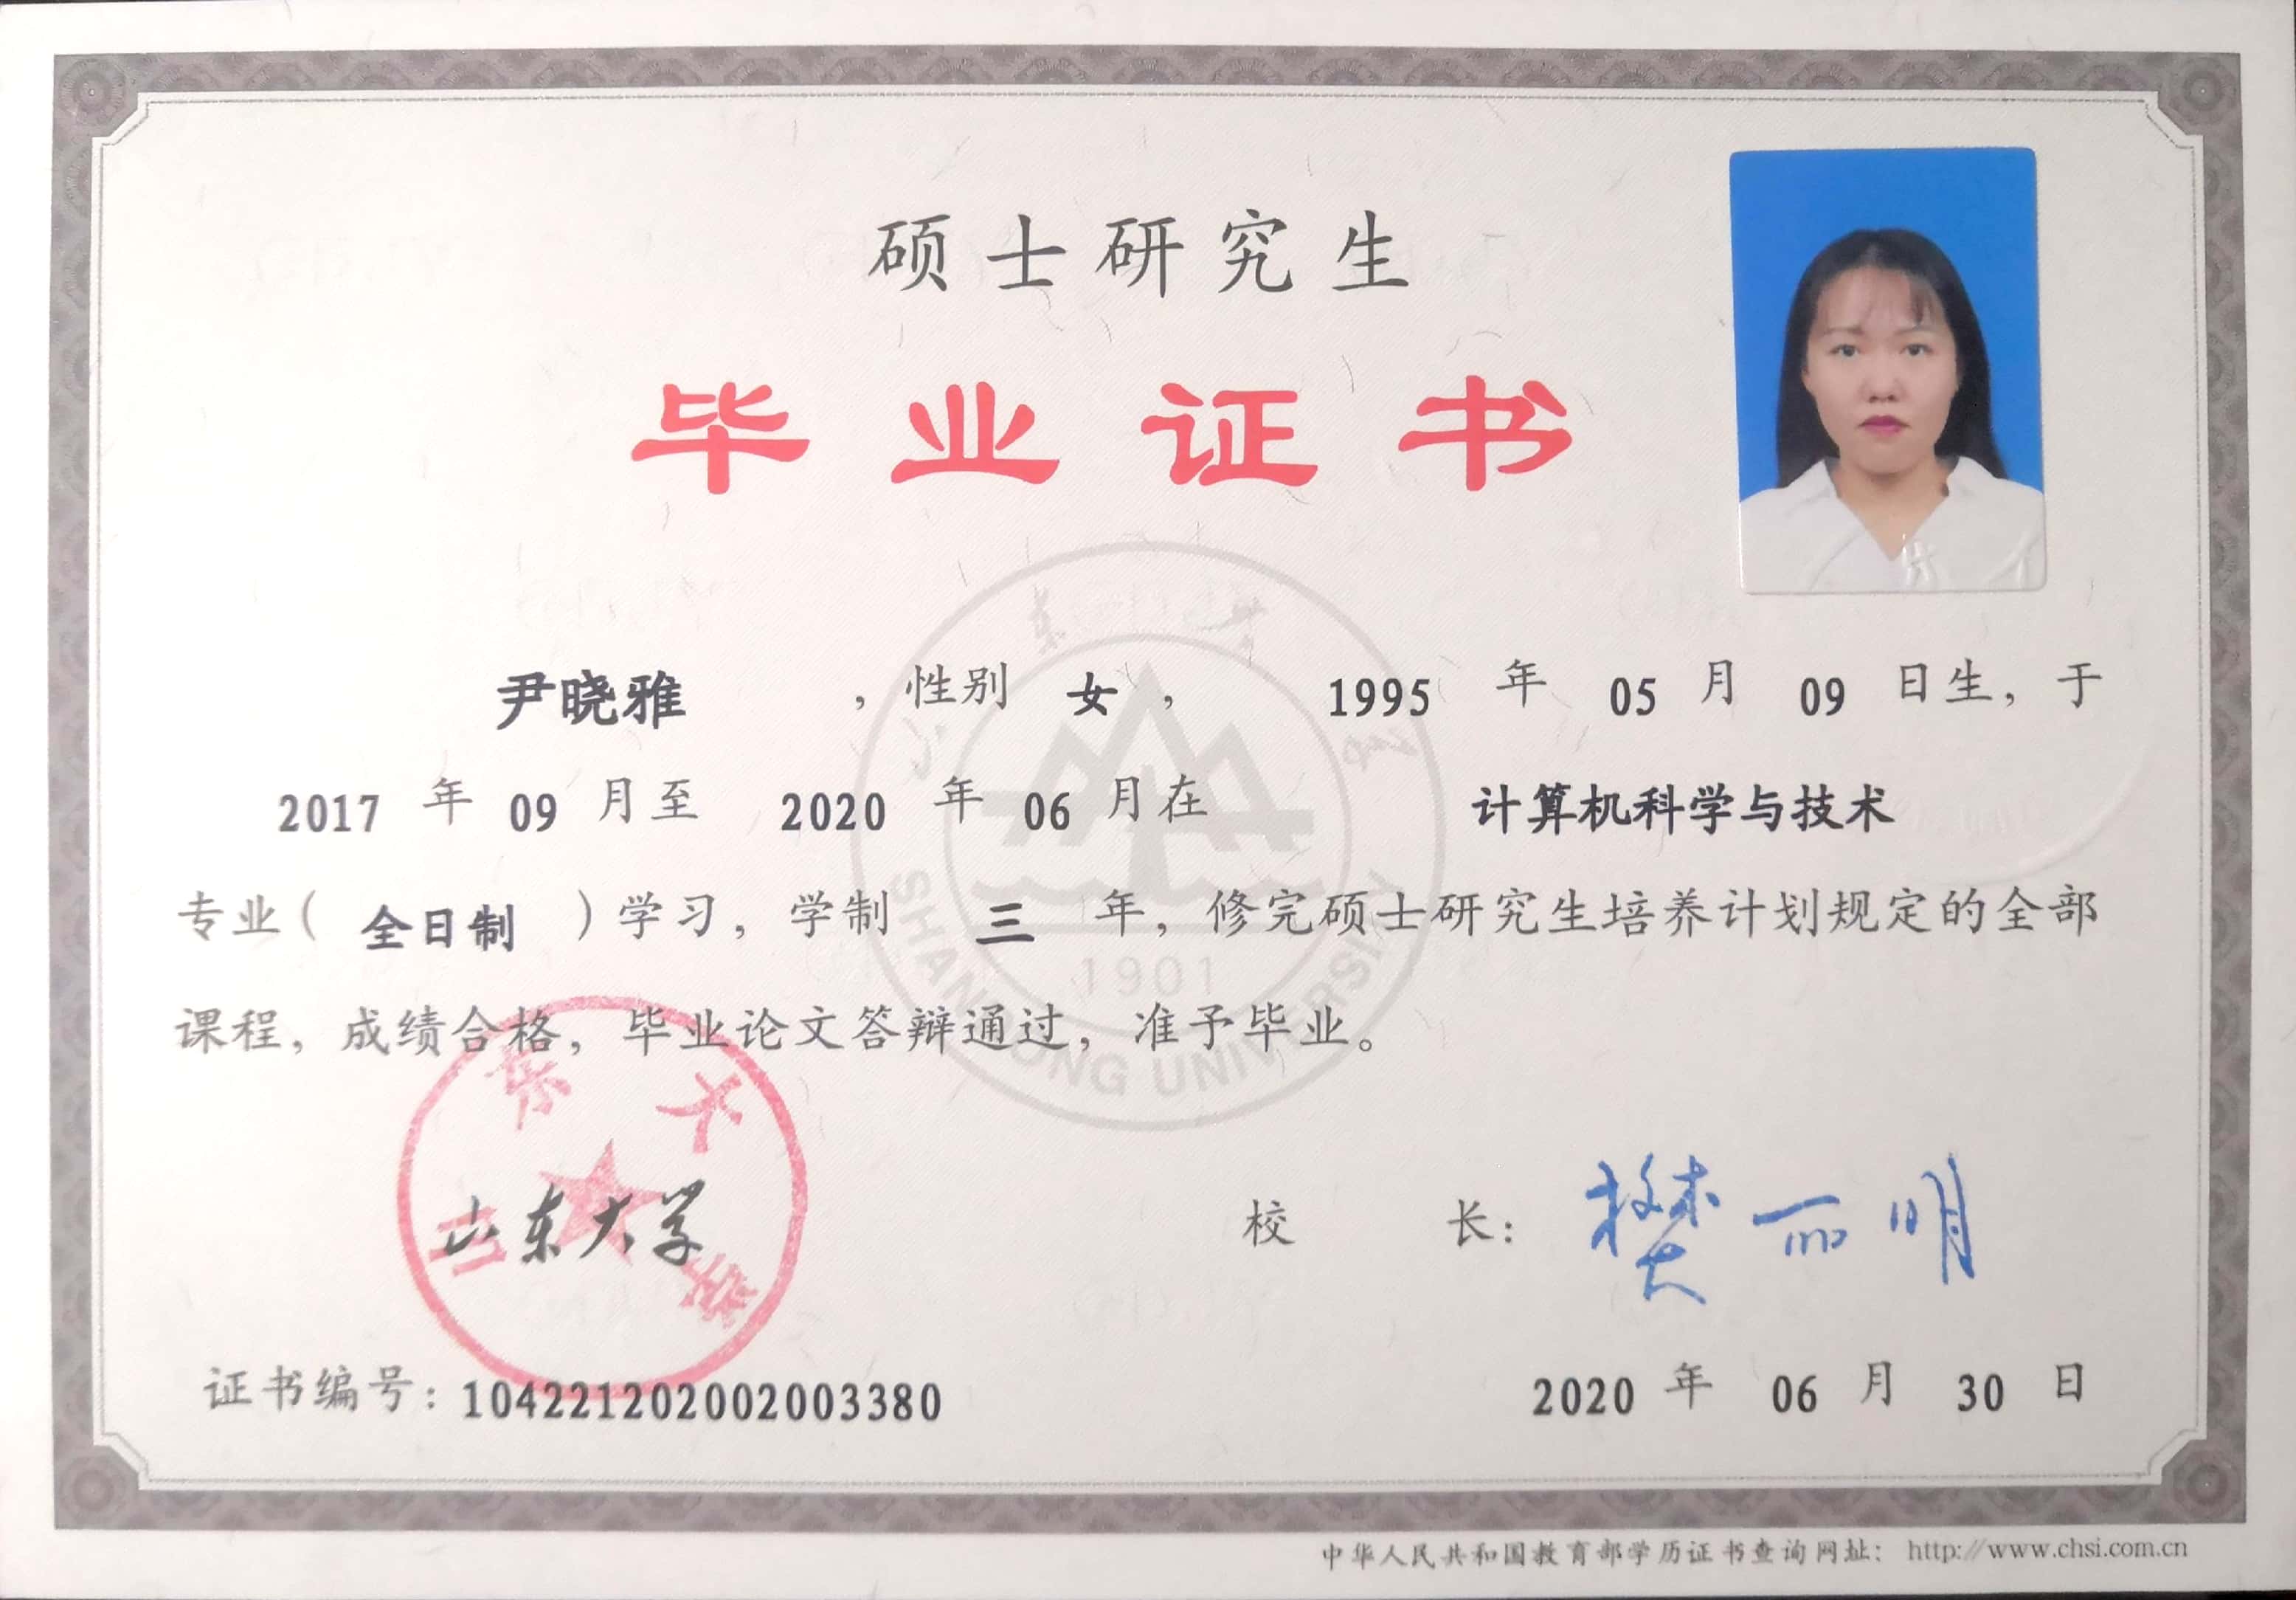 硕士研究生
毕业证书
尹晓雅，性别 女， 1995 年 05 月 09 日生，于
2017 年 09 月至 2020 年 06 月在 计算机科学与技术
专业（全日制）学习，学制 三 年，修完硕士研究生培养计划规定的全部
课程，成绩合格，毕业论文答辩通过，准予毕业。
山东大学
1901
SHANDONG UNIVERSITY
山东大学
山东大学
校 长：樊丽明
证书编号：104221202002003380
2020 年 06 月 30 日
中华人民共和国教育部学历证书查询网址：http://www.chsi.com.cn